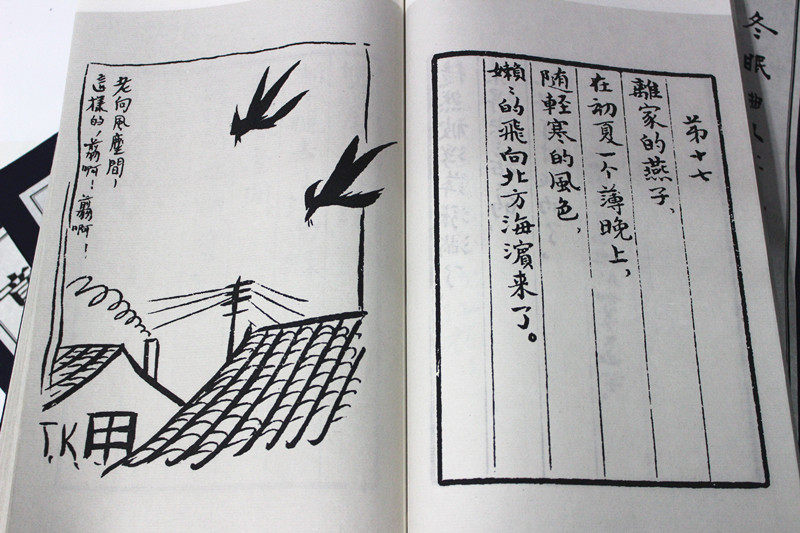 冬眠曲
苐十七
離家的燕子、
在初夏一个薄晚上，
随輕寒的風色、
嬾〻的飛向北方海濱来了。
老向風塵間，
這樣的，翦啊！翦啊！
T.K.